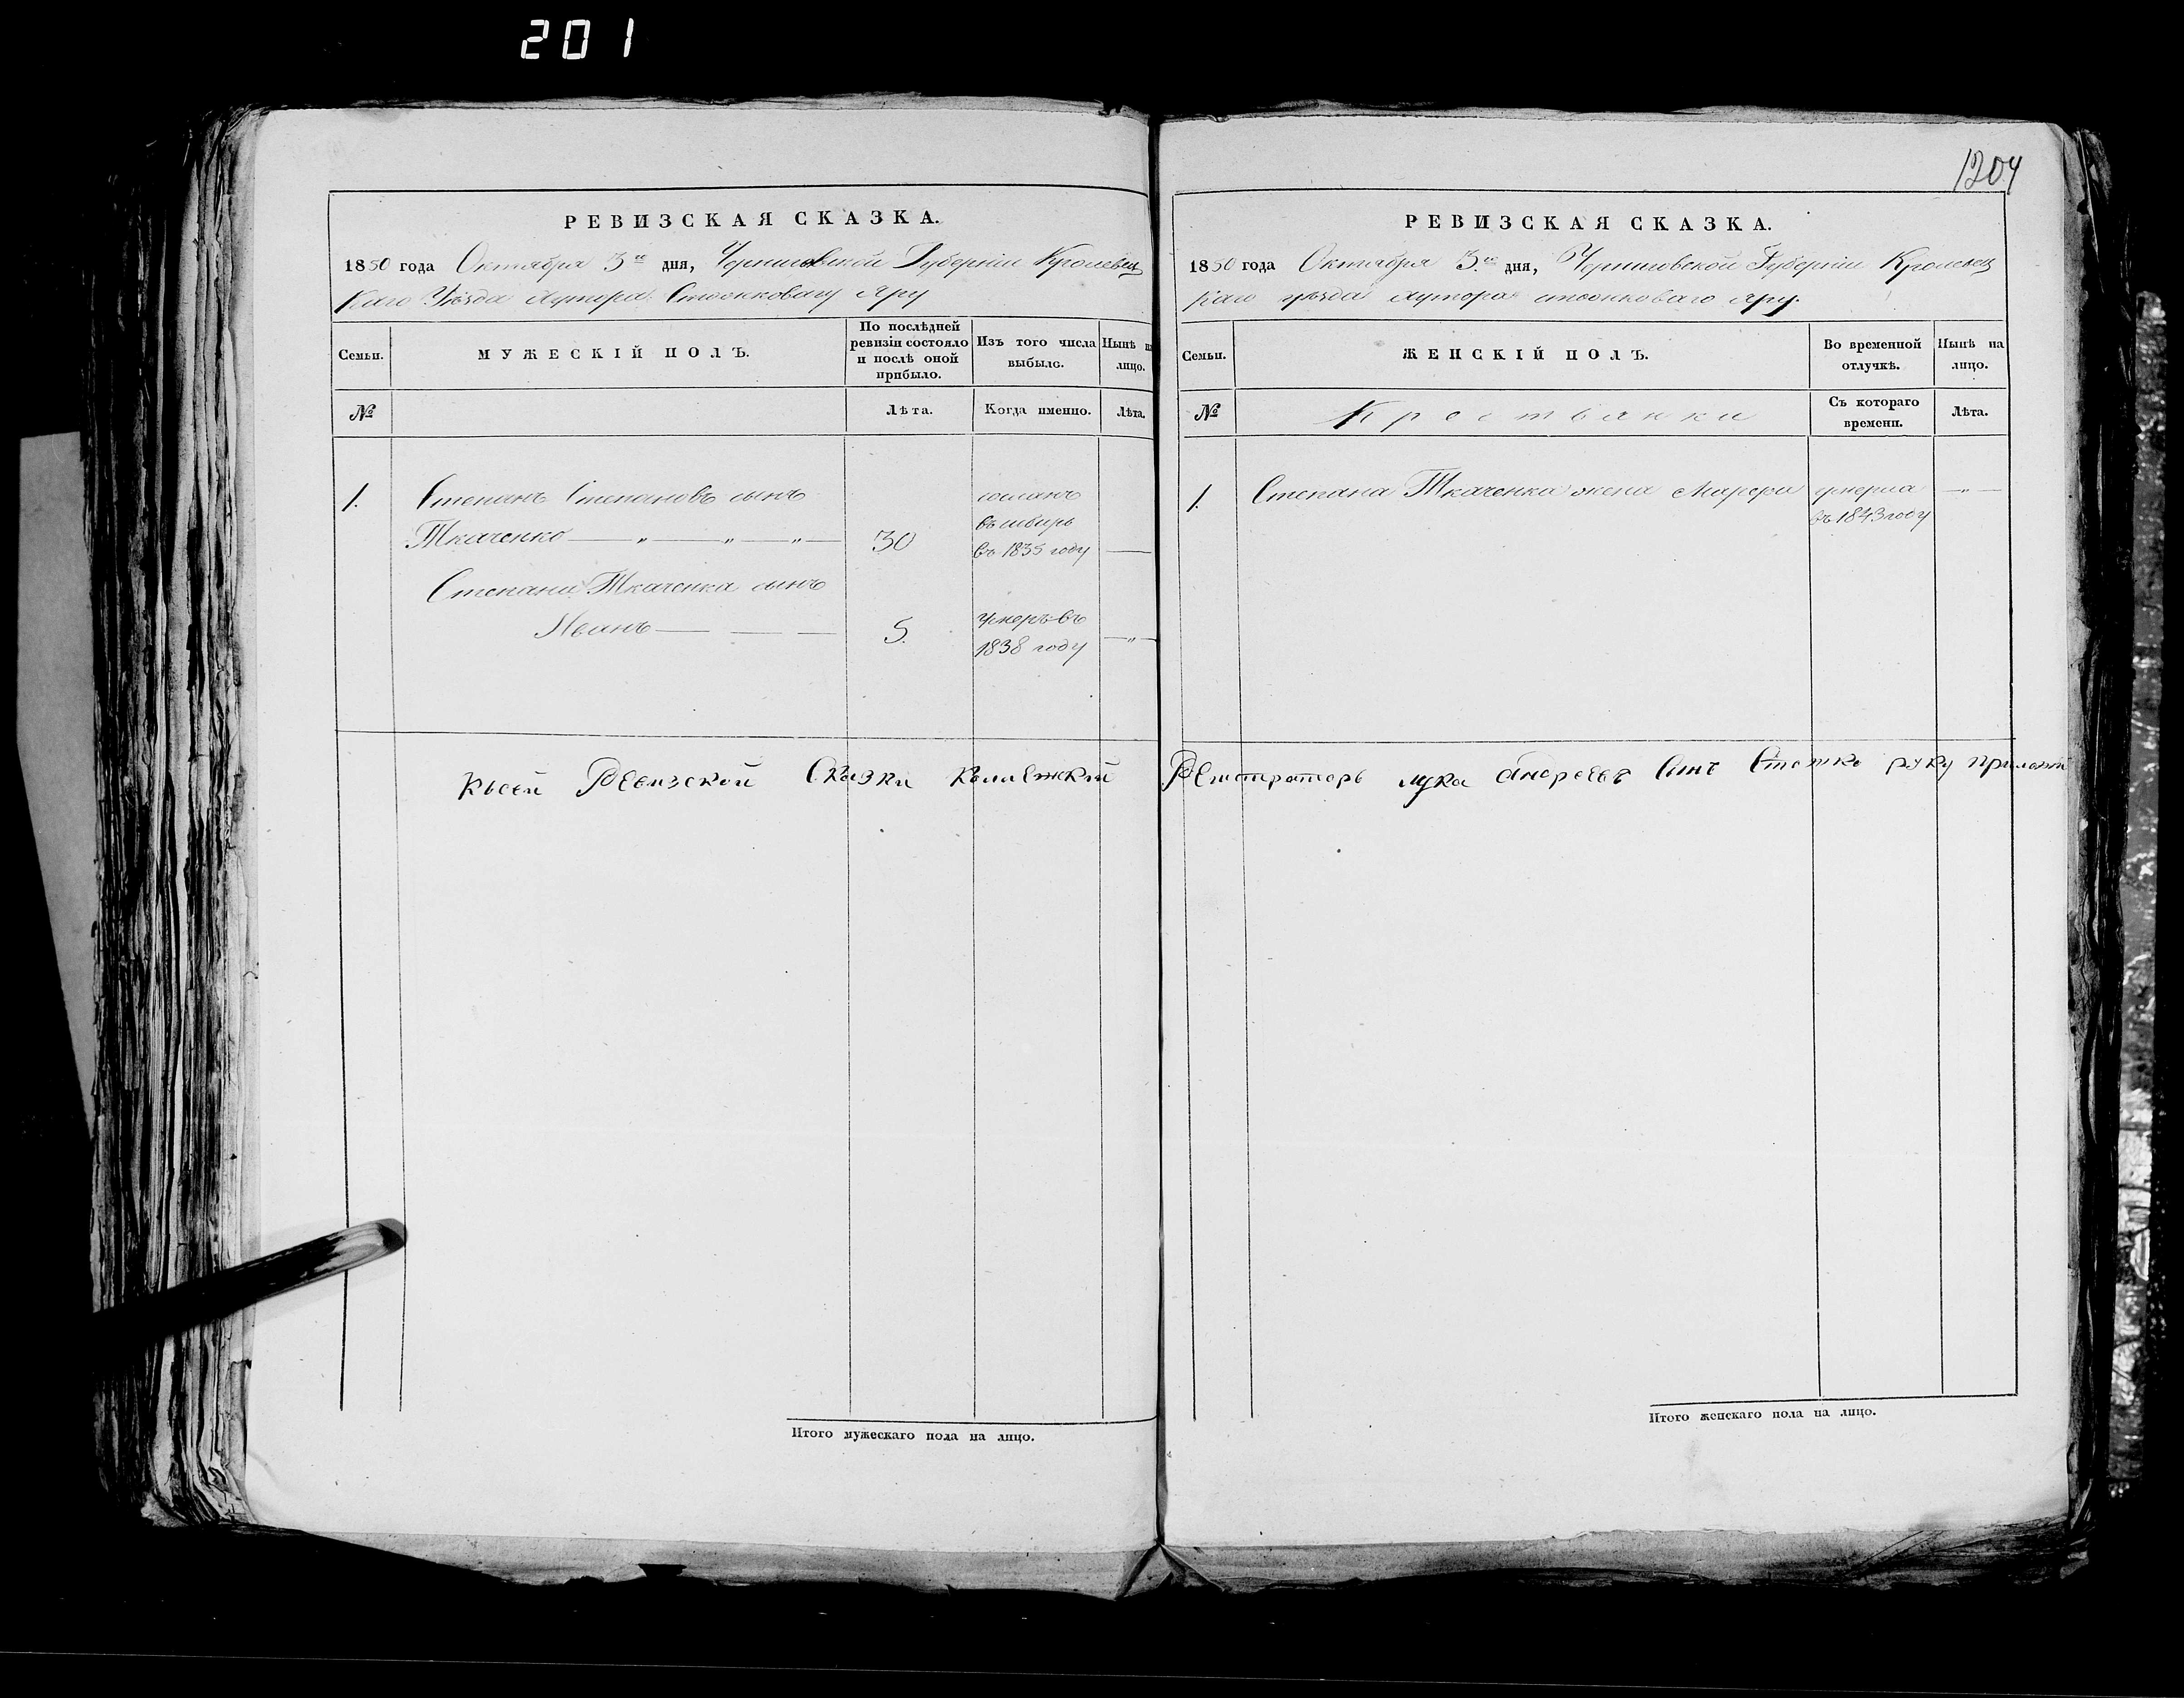 201
1204
РЕВИЗСКАЯ СКАЗКА.
1850 года Октября 3го дня, Черниговской Губерніи Кролевец
каго Уѣзда хутора Стожкова Яру
Семьи.
МУЖЕСКІЙ ПОЛЪ.
По послѣдней ревизіи состояло и послѣ оной прибыло.
Изъ того числа выбыло.
Нынѣ на лицо.
№
Лѣта.
Когда именно.
Лѣта.
1. Степанъ Степановъ сынъ
Ткаченко — „ — „ — „ — 30
сосланъ
въ сибирь
въ 1835 году —
Степана Ткаченка сынъ
Иванъ — — — 5.
умеръ въ
1838 году — „ —
Къ сей Ревизской Сказки Колиежкий
Итого мужескаго пола на лицо.
РЕВИЗСКАЯ СКАЗКА.
1850 года Октября 3.го дня, Черниговской Губерніи Кролевец
каго уѣзда хутора стожковаго яру.
Семьи.
ЖЕНСКІЙ ПОЛЪ.
Во временной отлучкѣ.
Нынѣ на лицо.
№
Крестьянки
Съ котораго времени.
Лѣта.
1. Степана Ткаченка жена Марфа умерла — „ —
въ 1843 году
Регистраторъ лука андреевъ Синъ Стожко руку приложил
Итого женскаго пола на лицо.